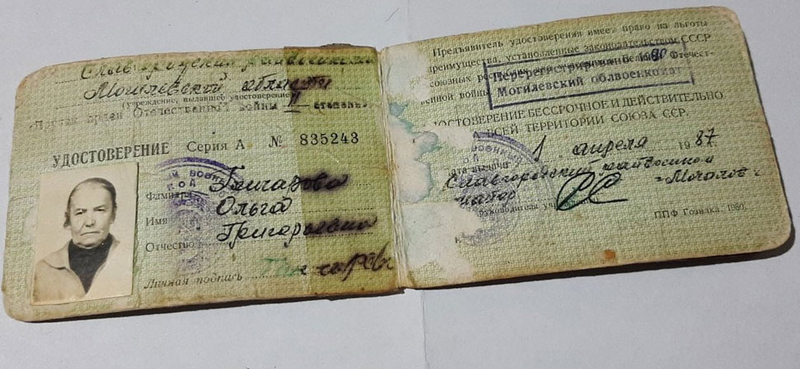 Славгородский райвоенком
Могилевской области
(учреждение, выдавшее удостоверение)
орден Отечественной войны II степени
УДОСТОВЕРЕНИЕ Серия А № 835243
Фамилия
Имя Ольга
Отчество Григорьевна
Личная подпись
Предъявитель удостоверения имеет право на льготы
преимущества, установленные законодательством СССР
союзных
Отечест-
венной войны
Перерегистрировано 1990
Могилевский облвоенкомат
УДОСТОВЕРЕНИЕ БЕССРОЧНОЕ И ДЕЙСТВИТЕЛЬНО
НА ВСЕЙ ТЕРРИТОРИИ СОЮЗА ССР.
1 апреля 1987
Славгородский райвоенком
майор
ППФ Гознака. 1980.